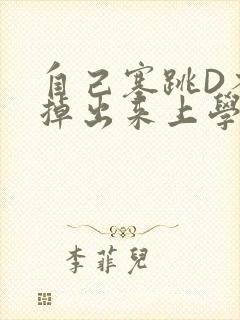 自己塞跳D
掉出来上學
李菲兒